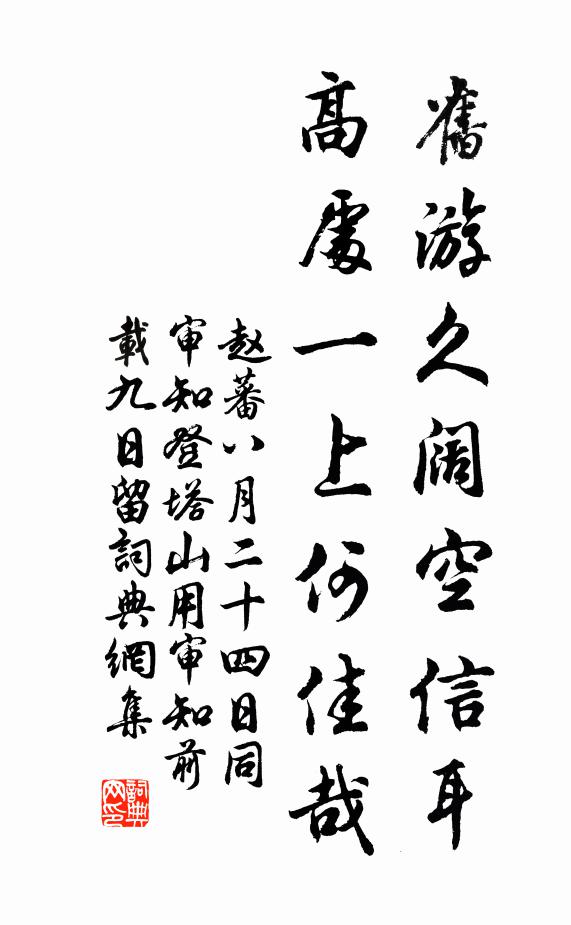 舊游久阔空信耳
高處一上何佳哉
赵蕃八月二十四日同
审知登塔山用审知前
載九日留詞典網集
詞典
网印